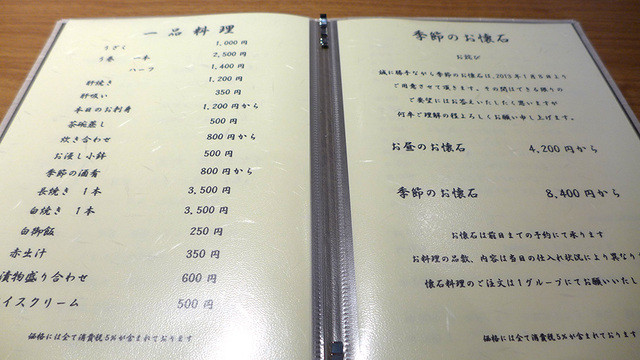 一品料理
うざく 1,000円
う巻 一本 2,500円
ハーフ 1,400円
肝焼き 1,200円
肝吸い 350円
本日のお刺身 1,200円から
茶碗蒸し 500円
炊き合わせ 800円から
お浸し小鉢 500円
季節の酒肴 800円から
長焼き 1本 3,500円
白焼き 1本 3,500円
白御飯 250円
赤出汁 350円
漬物盛り合わせ 600円
イスクリーム 500円
価格には全て消費税5%が含まれております
季節のお懐石
お詫び
誠に勝手ながら季節のお懐石は、2015年1月5日より
ご用意させて頂きます。その間はできる限りの
ご要望にはお答えいたしたく思いますが
何卒ご理解の程よろしくお願い申し上げます。
お昼のお懐石 4,200円から
季節のお懐石 8,400円から
お懐石は前日までの予約にて承ります
お料理の品数、内容は当日の仕入れ状況により異なり
懐石料理のご注文は1グループにてお願いいたし
価格には全て消費税5%が含まれております